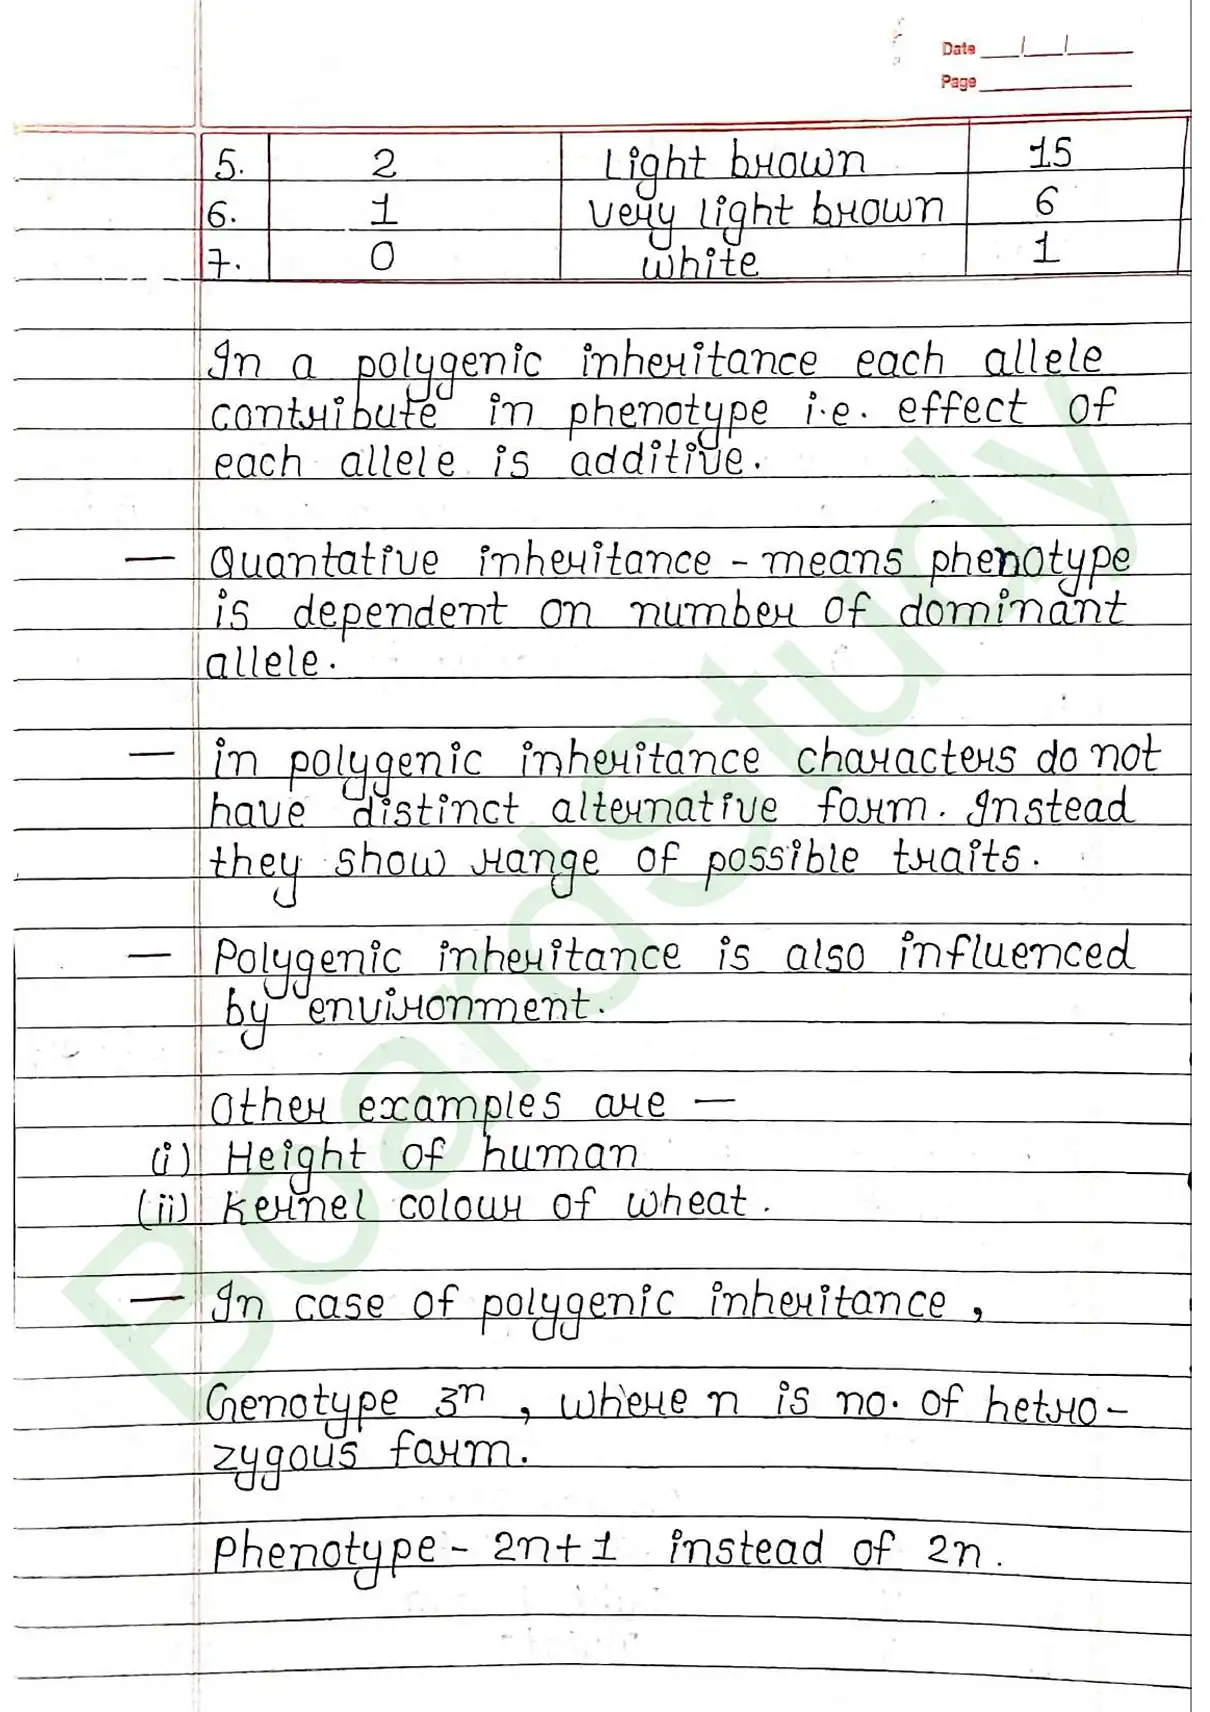 Date __/__/____
Page ________
5. 2 Light brown 15
6. 1 very light brown 6
7. 0 white 1
In a polygenic inheritance each allele
contribute in phenotype i.e. effect of
each allele is additive.
— Quantative inheritance - means phenotype
is dependent on number of dominant
allele.
— in polygenic inheritance characters do not
have distinct alternative form. Instead
they show range of possible traits.
— Polygenic inheritance is also influenced
by environment.
Other examples are —
(i) Height of human
(ii) Kernel colour of wheat.
— In case of polygenic inheritance,
Genotype 3ⁿ, where n is no. of hetro-
zygous form.
Phenotype - 2n+1 instead of 2n.
BoardStudy